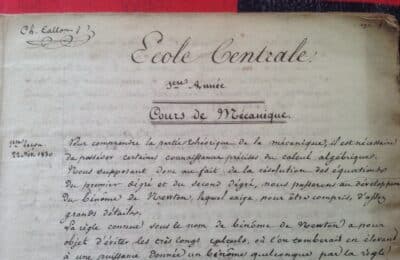 Ch. Callon
Ecole Centrale.
1ère Année
Cours de Mécanique.
1ère Leçon
22 Nov. 1830.
Pour comprendre la partie théorique de la mécanique, il est nécessaire
de posséder certaines connaissances précises du calcul algébrique.
Nous supposant donc au fait, de la résolution des équations
du premier dégré et du second dégré, nous passerons au développement
du binôme de Newton, lequel exige, pour être compris, d'assez
grands détails.
La règle connue sous le nom de binôme de Newton a pour
objet d'éviter les très longs calculs, où l'on tomberait en élevant
à une puissance donnée un binôme quelconque par la règle